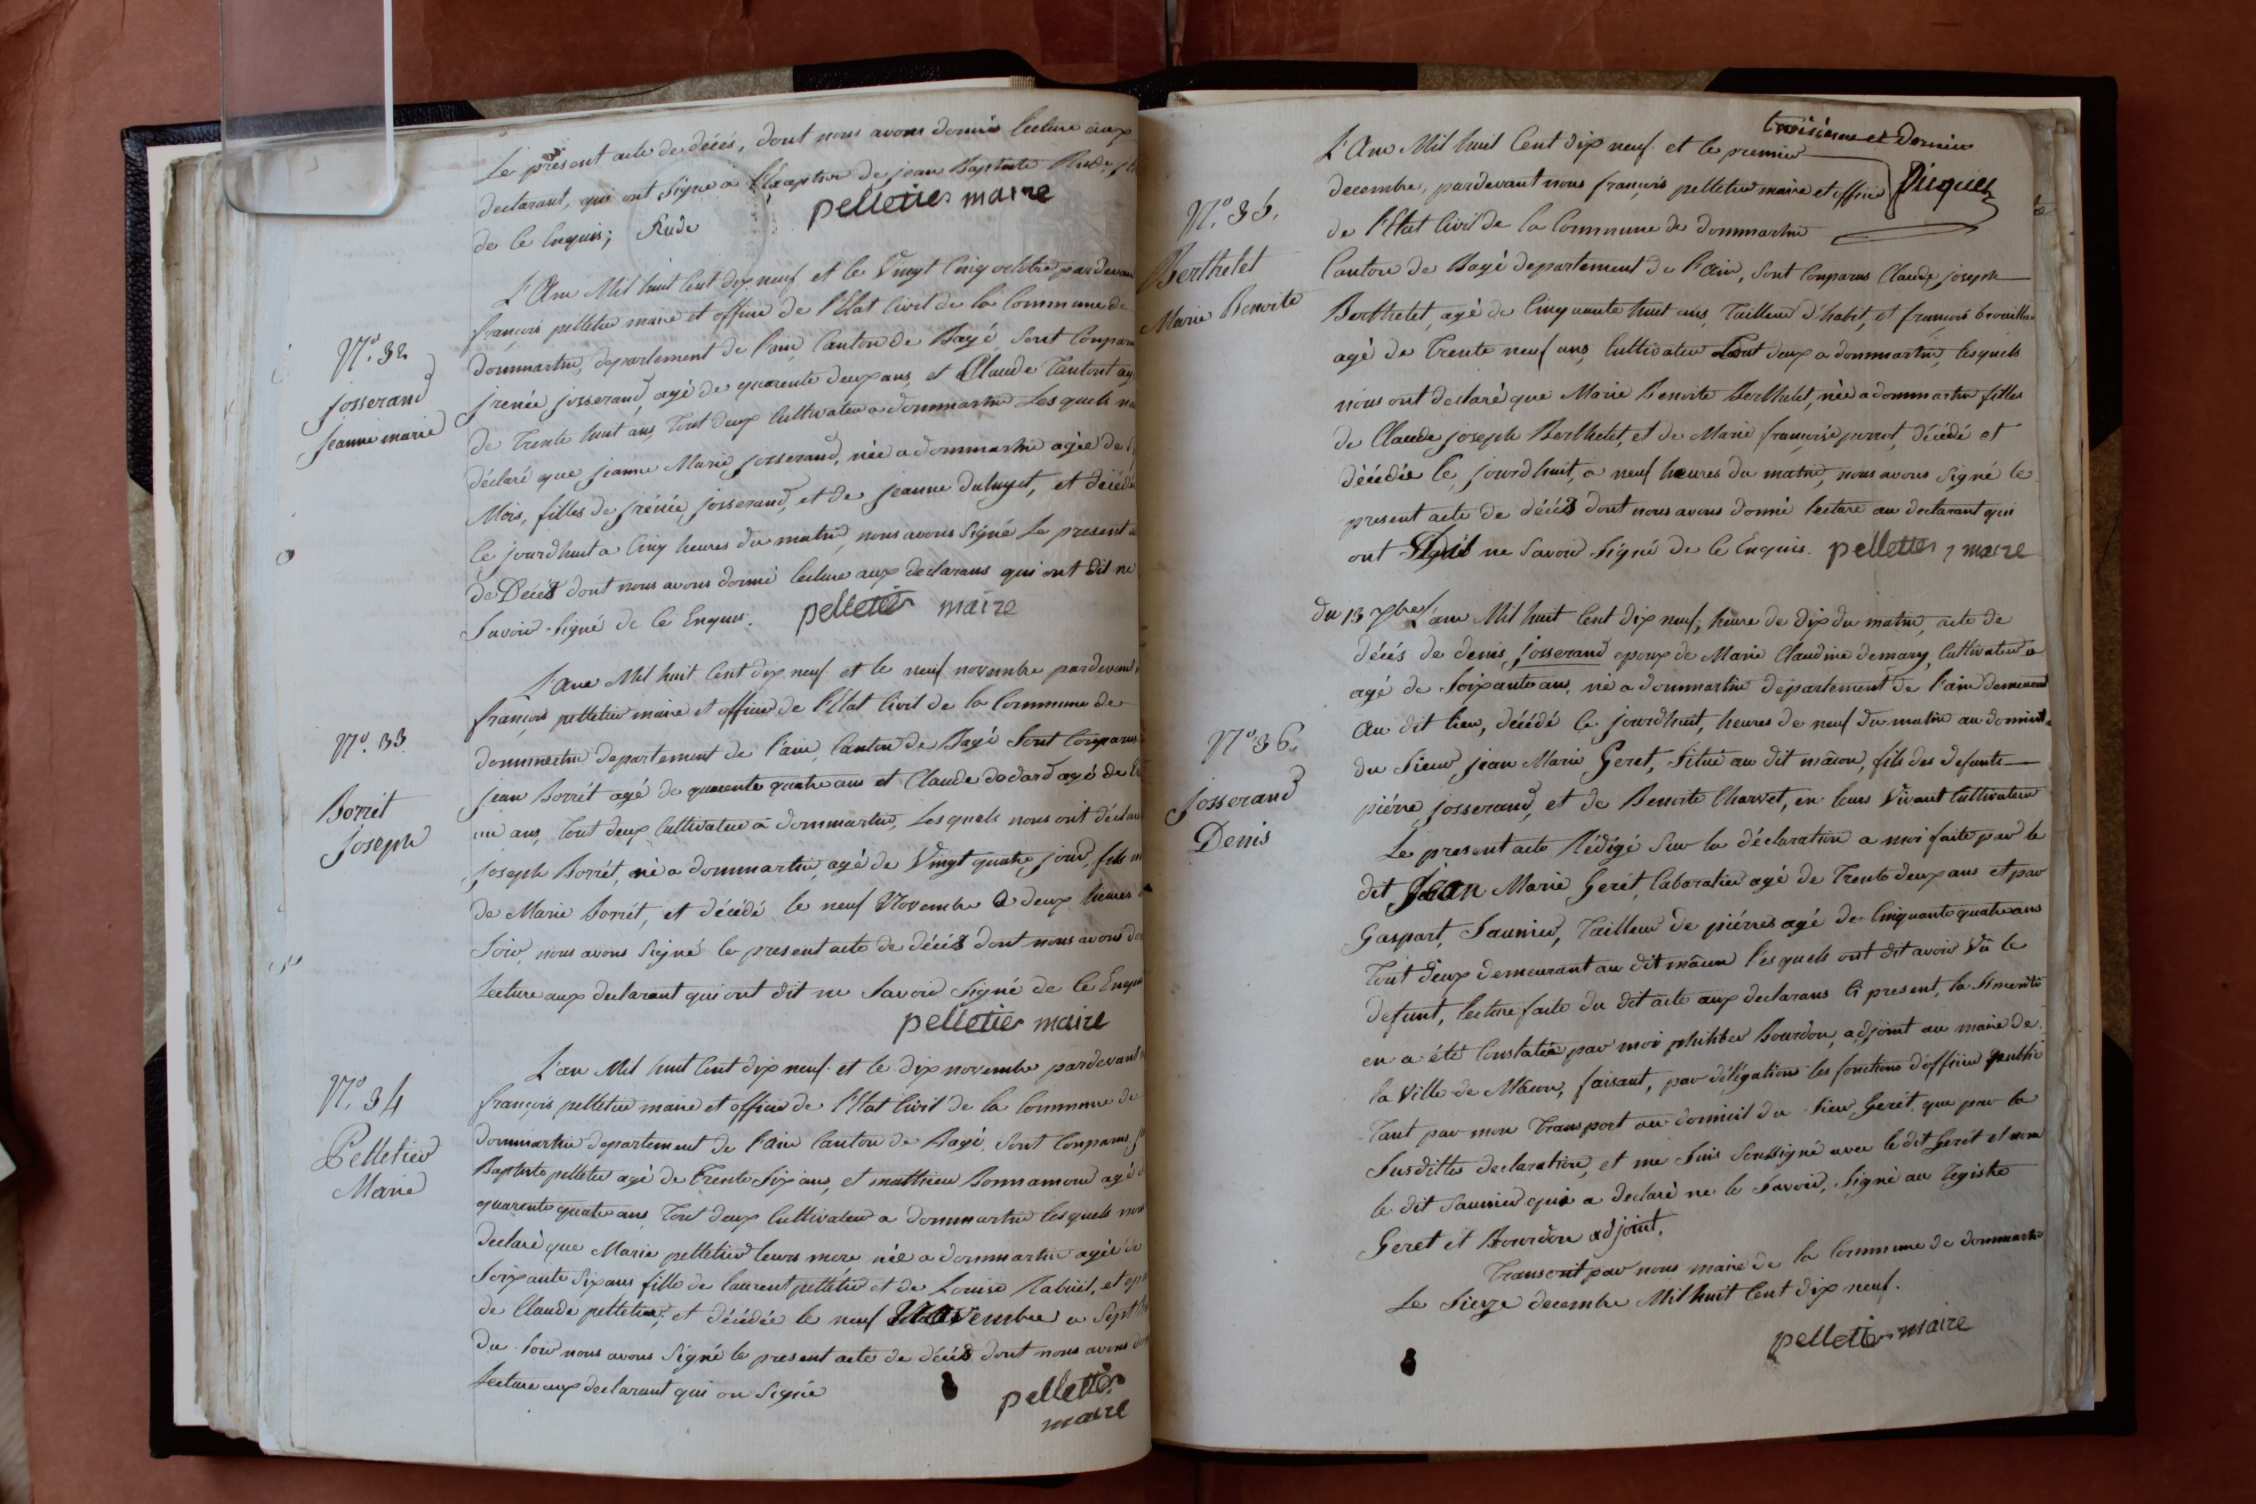 Le présent acte de décés, dont nous avons donnés lecture aux
declarant, qui ont signé a l'exaption de jean Baptiste Rude
de ce Enquis; Rude pelletier maire
N.° 32
josserand
jeanne marie
L'An Mil huit Cent dix neuf et le Vingt Cinq octobre pardevan
françois pelletier maire et officier de l'Etat Civil de la Commune de
dommartin, departement de l'ain Canton de Bagé, Sont Conparu
jrenée josserand, agé de quarente deux ans, et Claude Tantont ag
de Trente huit ans, Tout deux Cultivateur a dommartin Lesquels n
déclaré que jeanne Marie josserand, née a dommartin agée de
Mois, filles de jrénée josserand, et de jeanne duluyet, et décédé
le jourdhuit a Cinq heures du matin, nous avons Signé Le present
de Décés dont nous avons donné lecture aux declarans qui ont dit ne
Savoir Signé de Ce Enquis. pelletier maire
N.° 33
Borrét
joseph
L'An Mil huit Cent dix neuf et le neuf novembre pardevant
françois pelletier maire et officier de l'Etat Civil de la Commune de
dommartin departement de l'ain, Canton de Bagé Sont Conparus
jean Borrét agé de quarente quatre ans et Claude dodard agé de
un ans, Tout deux Cultivateur à dommartin, Lesquels nous ont déclar
joseph Borrét, né a dommartin, agé de Vingt quatre jour, fils
de Marie Borrét, et décédé le neuf Novembre a deux heures
Soir, nous avons Signé le present acte de décés dont nous avons
Lecture aux declarant qui ont dit ne Savoir Signé de Ce Enquis
pelletier maire
N.° 34
Pelletier
Marie
L'an Mil huit Cent dix neuf et le dix novembre pardevant
françois pelletier maire et officier de l'Etat Civil de la Commune de
dommartin departement de l'ain Canton de Bagé, Sont Conparus
Baptiste pelletier agé de Trente Six ans, et matthieu Bonnamour agé
quarente quatre ans Tout deux Cultivateur a dommartin lesquels nous
declaré que Marie pelletier leurs mere née a dommartin agée de
Soixante Six ans fille de laurent pelletier et de Louise Rabuël, et
de Claude pelletier, et décédée le neuf Novembre a Sept
du Soir nous avons Signé le present acte de décés dont nous avons
Lecture aux declarant qui on Signé
pelletier
maire
troisieme et dernier
Duquey
N.° 35.
Berthelet
Marie Benoite
L'An Mil huit Cent dix neuf et le premier
decembre, pardevant nous françois pelletier maire et officier
de l'Etat Civil de la Commune de dommartin
Canton de Bagé departement de l'ain, Sont Conparus Claude joseph
Berthelet, agé de Cinquante huit ans, Tailleur d'habit, et françois brouillet
agé de Trente neuf ans, Cultivateur Tout deux a dommartin, lesquels
nous ont declaré que Marie Benoite Berthelet, née a dommartin filles
de Claude joseph Berthelet, et de Marie françoise perrot, décédé et
décédée le jourdhuit, a neuf heures du matin, nous avons Signé le
present acte de décés dont nous avons donné lecture au declarant qui
ont dit ne Savoir Signé de Ce Enquis. pelletier, maire
N.° 36.
Josserand
Denis
du 13 Xbre l'an Mil huit Cent dix neuf, heure de dix du matin, acte de
décés de denis, josserand epoux de Marie Claudine demary, Cultivateur
agé de Soixante ans, né a dommartin departement de l'ain demeurant
au dit lieu, décédé le jourdhuit, heures de neuf du matin au domicil
du Sieur jean Marie Geret, Situé au dit mâcon, fils des defunts
piérre josserand, et de Benoite Charvet, en leurs Vivant Cultivateur
Le present acte Rédigé Sur la déclaration a moi faite par le
dit Jean Marie Gerét, Cabaratier agé de Trente deux ans et par
Gaspart, Saunier, Tailleur de piérres agé de Cinquante quatre ans
Tout deux demeurant au dit mâcon lesquels ont dit avoir Vû le
defunt, lecture faite du dit acte aux declarans Ci present, la Sincérité
en a été Constatée par moi philibert Bourdon, adjoint au maire de
la Ville de Mâcon, faisant, par délégation les fonctions d'officier publié
Tant par mon Transport au domicil du Sieur Gerét que par la
Susditte declaration, et me Suis Soussigné avec le dit Gerét et non
le dit Saunier qui a declaré ne le Savoir, Signé au Registre
Geret et Bourdon adjoint.
Transcrit par nous maire de la Commune de dommartin
Le Sieze decembre Mil huit Cent dix neuf.
pelletier maire